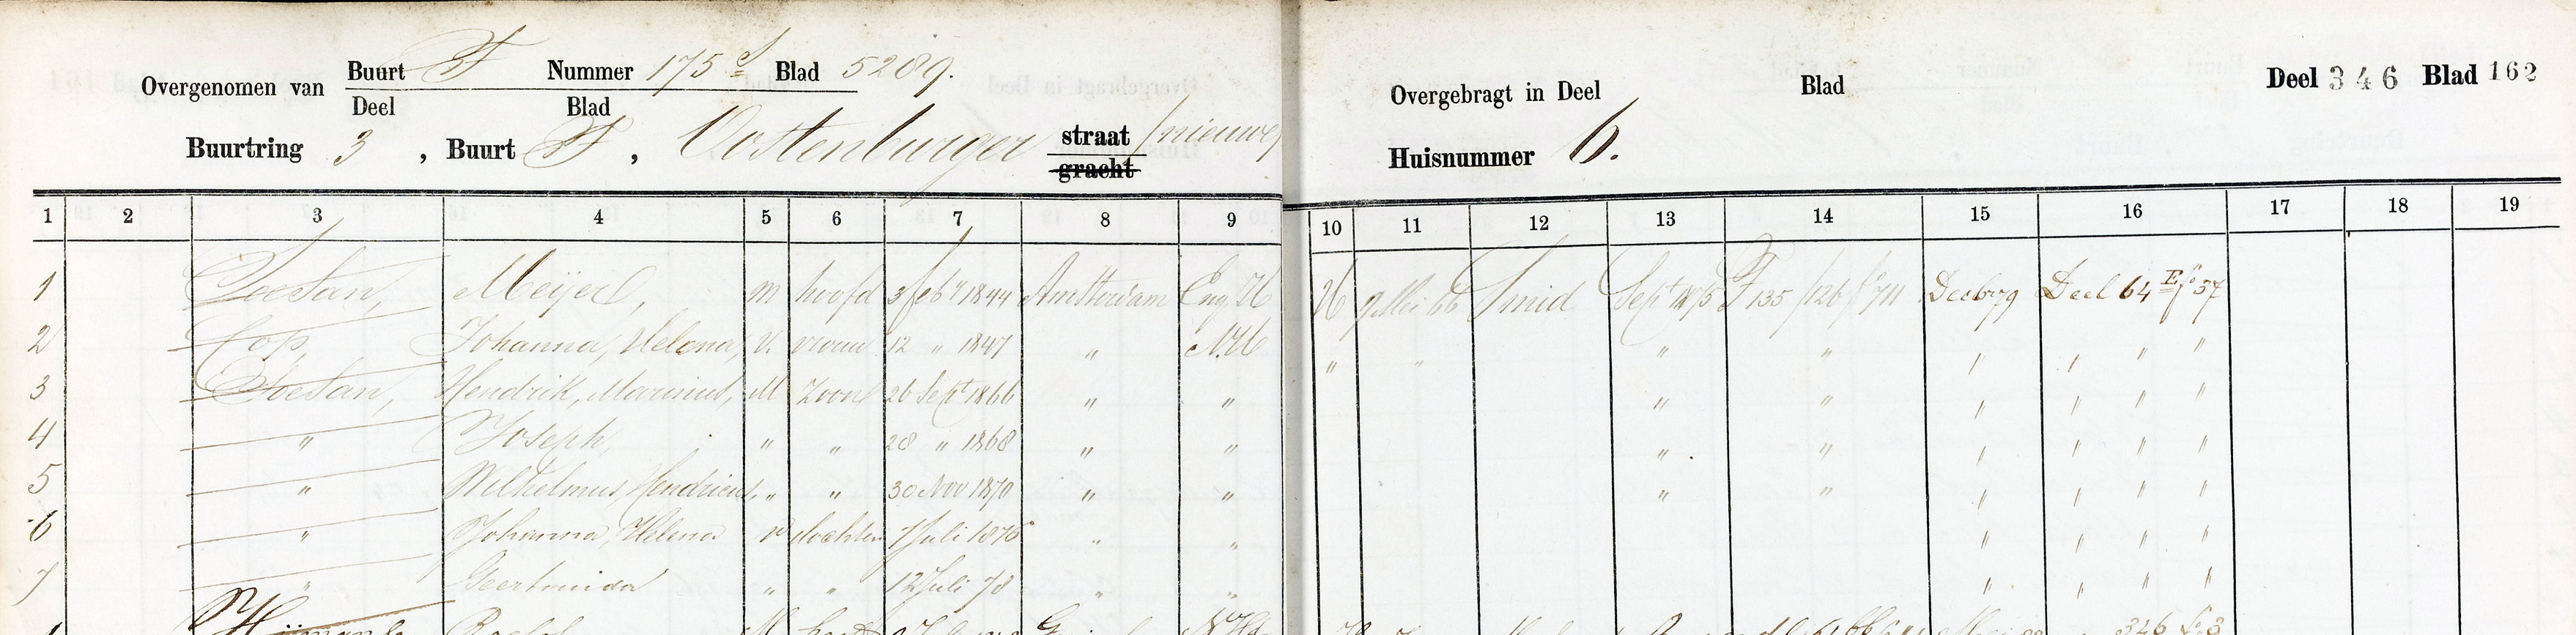 Overgenomen van Buurt F Nummer 175 d Blad 5289.
Deel Blad
Buurtring 3, Buurt F, Oostenburger straat /nieuwe
gracht
Overgebragt in Deel Blad
Huisnummer 6.
Deel 346 Blad 162
1 2 3 4 5 6 7 8 9 10 11 12 13 14 15 16 17 18 19
1 Soesan, Meijer, m hoofd 3 feb 1844 Amsterdam Eng H H 9 Mei 66 Smid Sept 1875 F 135 /126 f 711 Deel 64 E fo 37
2 Cop, Johanna, Helena, V. vrouw 12 " 1847 " N.H " " " " " " " "
3 Soesan, Hendrik, Marinus, M Zoon 26 Sept 1866 " " " " " " " "
4 " Joseph, " " 28 " 1868 " " " " " " " "
5 " Wilhelmus, Hendricus, " " 30 Nov 1870 " " " " " " " "
6 " Johanna, Helena v dochter 7 Juli 1876 " " " " " "
7 " Geertruida " " 12 Juli 78 " " " " " "
346 fo 3